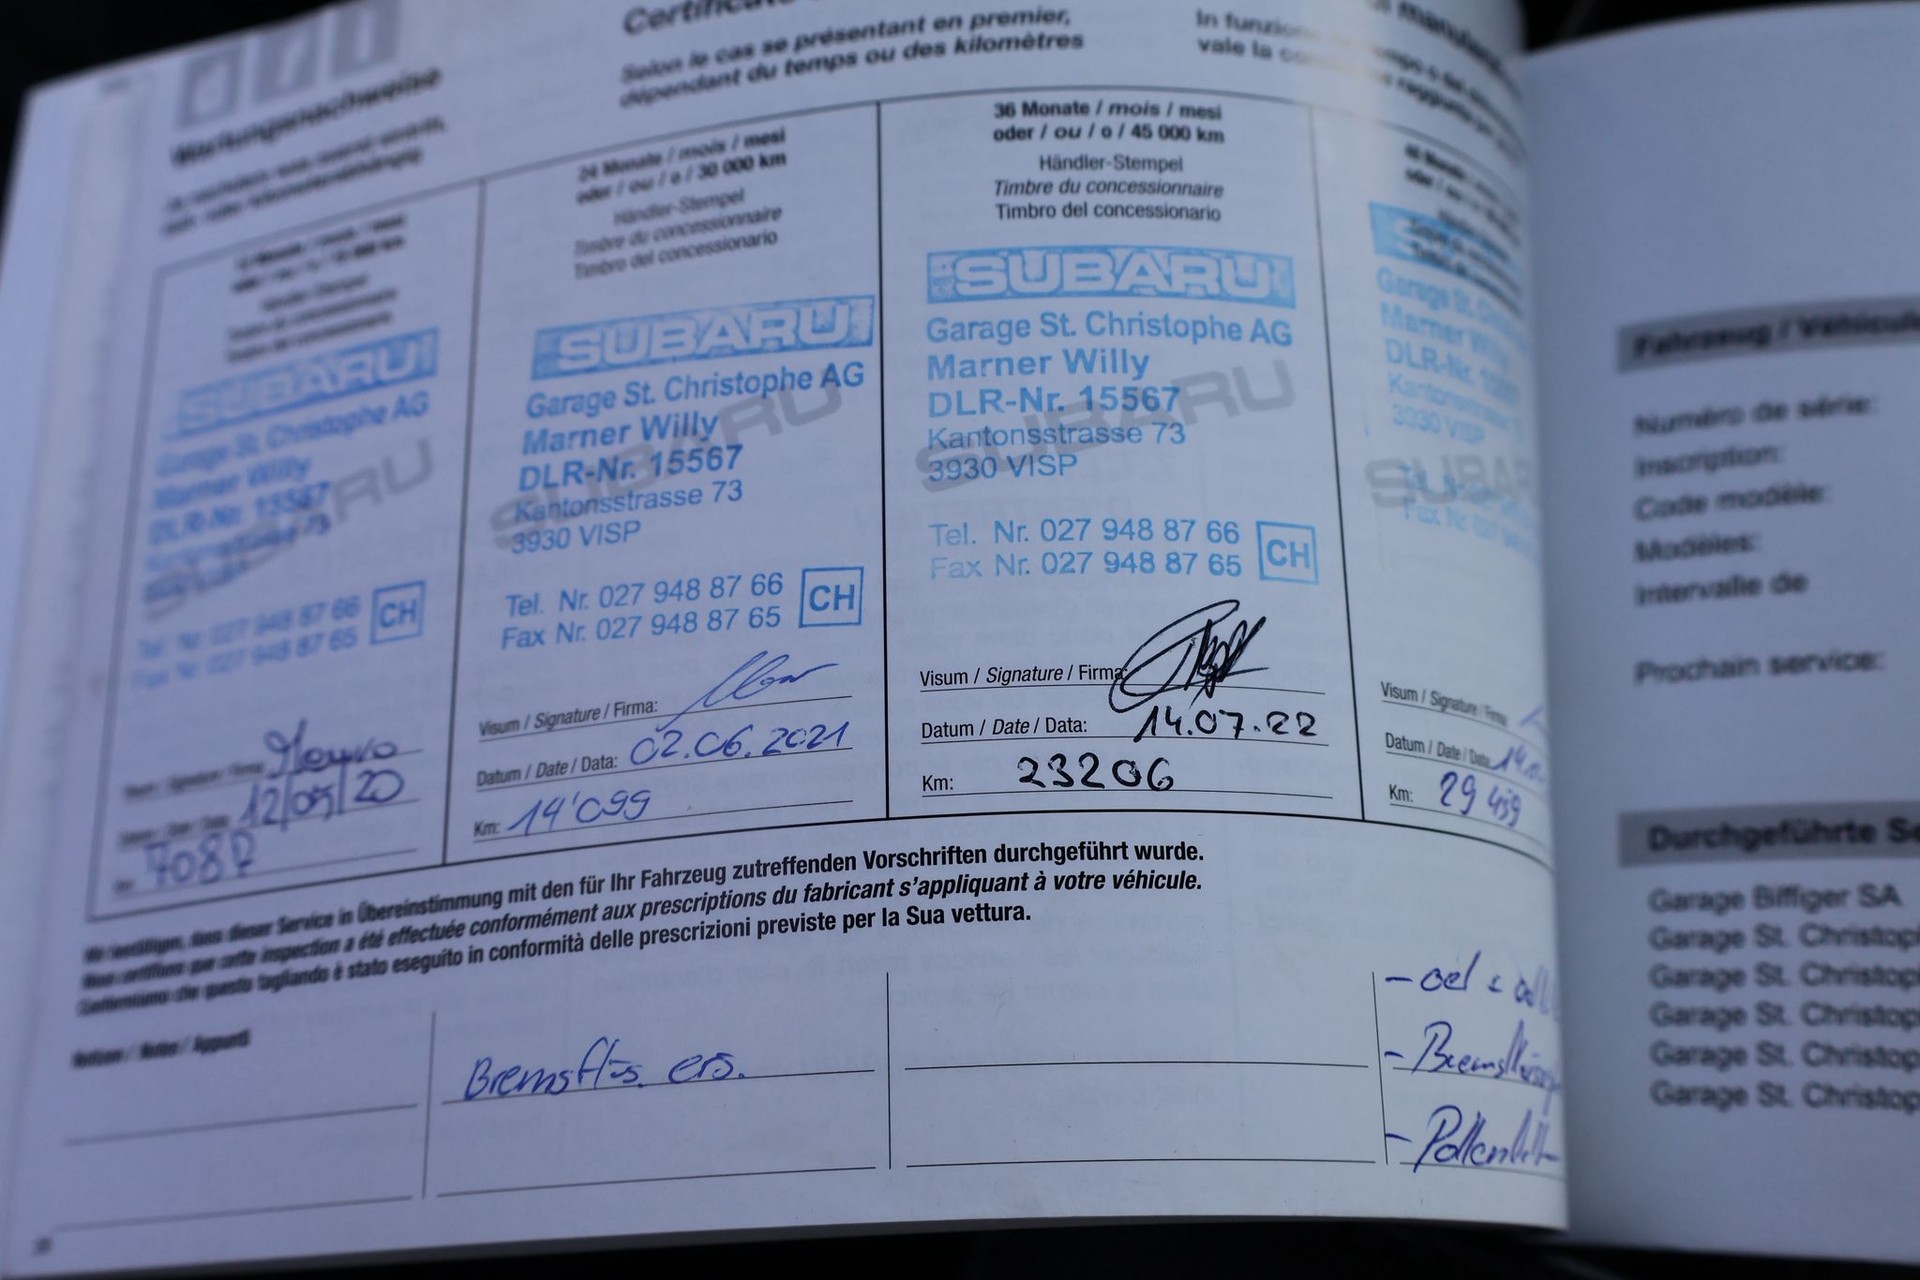 Wartungsnachweise
Selon le cas se présentant en premier,
dépendant du temps ou des kilomètres
In funzione
vale la
12 Monate / mois / mesi
Händler-Stempel
Timbre du concessionnaire
Timbro del concessionario
SUBARU
Garage St. Christophe AG
Marner Willy
DLR-Nr. 15567
Kantonsstrasse 73
SUBARU
Tel. Nr. 027 948 87 66
Fax Nr. 027 948 87 65
CH
Visum / Signature / Firma:
Datum / Date / Data: 12/05/20
24 Monate / mois / mesi
oder / ou / o / 30 000 km
Händler-Stempel
Timbre du concessionnaire
Timbro del concessionario
SUBARU
Garage St. Christophe AG
Marner Willy
DLR-Nr. 15567
Kantonsstrasse 73
3930 VISP
SUBARU
Tel. Nr. 027 948 87 66
Fax Nr. 027 948 87 65
CH
Visum / Signature / Firma:
Datum / Date / Data: 02.06.2021
Km: 14'099
36 Monate / mois / mesi
oder / ou / o / 45 000 km
Händler-Stempel
Timbre du concessionnaire
Timbro del concessionario
SUBARU
Garage St. Christophe AG
Marner Willy
DLR-Nr. 15567
Kantonsstrasse 73
3930 VISP
SUBARU
Tel. Nr. 027 948 87 66
Fax Nr. 027 948 87 65
CH
Visum / Signature / Firma:
Datum / Date / Data: 14.07.22
Km: 23206
Garage St.
Marner Willy
DLR-Nr.
3930 VISP
Visum / Signature / Firma
Datum / Date / Data:
Km: 29 459
Wir bestätigen, dass dieser Service in Übereinstimmung mit den für Ihr Fahrzeug zutreffenden Vorschriften durchgeführt wurde.
Nous certifions que cette inspection a été effectuée conformément aux prescriptions du fabricant s'appliquant à votre véhicule.
Confermiamo che questo tagliando è stato eseguito in conformità delle prescrizioni previste per la Sua vettura.
Notizen / Notes / Appunti
Bremsfls. ers.
Fahrzeug / Véhicule
Numéro de série:
Inscription:
Code modèle:
Modèles:
Intervalle de
Prochain service:
Durchgeführte Se
Garage Biffiger SA
Garage St. Christop
Garage St. Christop
Garage St. Christop
Garage St. Christop
Garage St. Christop